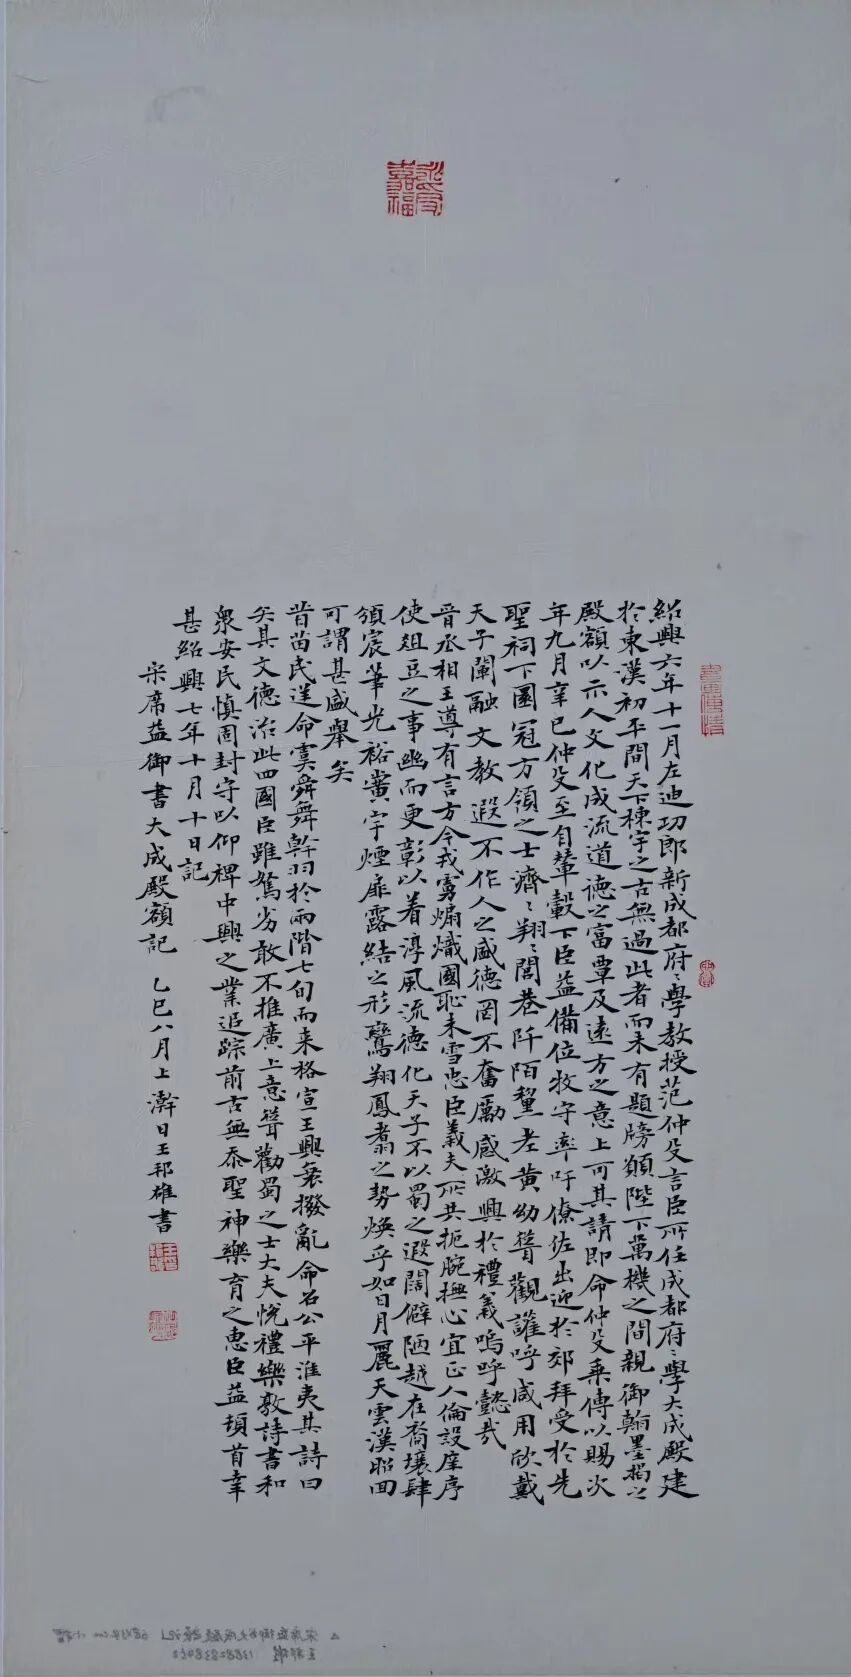 紹興六年十一月左迪功郎新成都府〻學教授范仲殳言臣所任成都府〻學大成殿建
於東漢初平間天下棟宇之古無過此者而未有題牓願陛下萬機之間親御翰墨揭之
殿額以示人文化成流道德之富覃及遠方之意上可其請即命仲殳乘傳以賜次
年九月辛巳仲殳至自輦轂下臣益備位牧守率吁僚佐出迎於郊拜受於先
聖祠下圜冠方領之士濟〻翔〻閭巷阡陌黧老黄幼聳觀讙呼咸用欣戴
天子闡融文教遐不作人之盛德罔不奮勵感激興於禮義嗚呼懿哉
晉丞相王導有言方今戎虜煽熾國恥未雪忠臣義夫所共扼腕撫心宜正人倫設庠序
使俎豆之事幽而更彰以着淳風流德化天子不以蜀之遐闊僻陋越在裔壤肆
頒宸筆光裕黌宇煙扉露結之形鸞翔鳳翥之勢焕乎如日月麗天雲漢昭回
可謂甚盛舉矣
昔苗民逆命虞舜舞幹羽於兩階七旬而来格宣王興衰撥亂命召公平淮夷其詩曰
矣其文德治此四國臣雖駑劣敢不推廣上意聳勸蜀之士大夫悅禮樂敦詩書和
衆安民慎固封守以仰裨中興之業追踪前古無忝聖神樂育之惠臣益頓首幸
甚紹興七年十月十日記
宋席益御書大成殿額記 乙巳八月上澣日王邦雄書